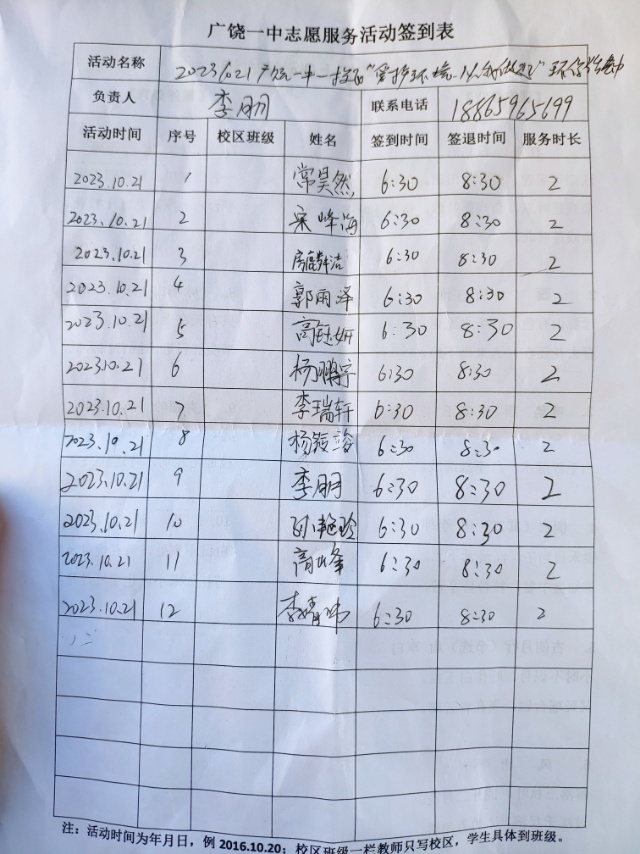 广饶一中志愿服务活动签到表
活动名称 20231021广饶一中一校区"爱护环境
负责人 李朋 联系电话 18865965699
活动时间 序号 校区班级 姓名 签到时间 签退时间 服务时长
2023.10.21 1 常昊然 6:30 8:30 2
2023.10.21 2 宋峰海 6:30 8:30 2
2023.10.21 3 6:30 8:30 2
2023.10.21 4 郭雨泽 6:30 8:30 2
2023.10.21 5 高钰妍 6:30 8:30 2
2023.10.21 6 杨鹏宇 6:30 8:30 2
2023.10.21 7 李瑞轩 6:30 8:30 2
2023.10.21 8 6:30 8:30 2
2023.10.21 9 李朋 6:30 8:30 2
2023.10.21 10 孙艳玲 6:30 8:30 2
2023.10.21 11 6:30 8:30 2
2023.10.21 12 6:30 8:30 2
注：活动时间为年月日，例 2016.10.20；校区班级一栏教师只写校区，学生具体到班级。